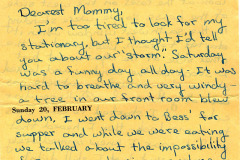 Dearest Mommy,
I'm too tired to look for my
stationary, but I thought I'd tell
you about our "storm". Saturday
was a funny day all day. It was
hard to breathe and very windy
a tree in our front room blew
Sunday 20, FEBRUARY
down, I went down to Bess' for
supper and while we were eating
we talked about the impossibility